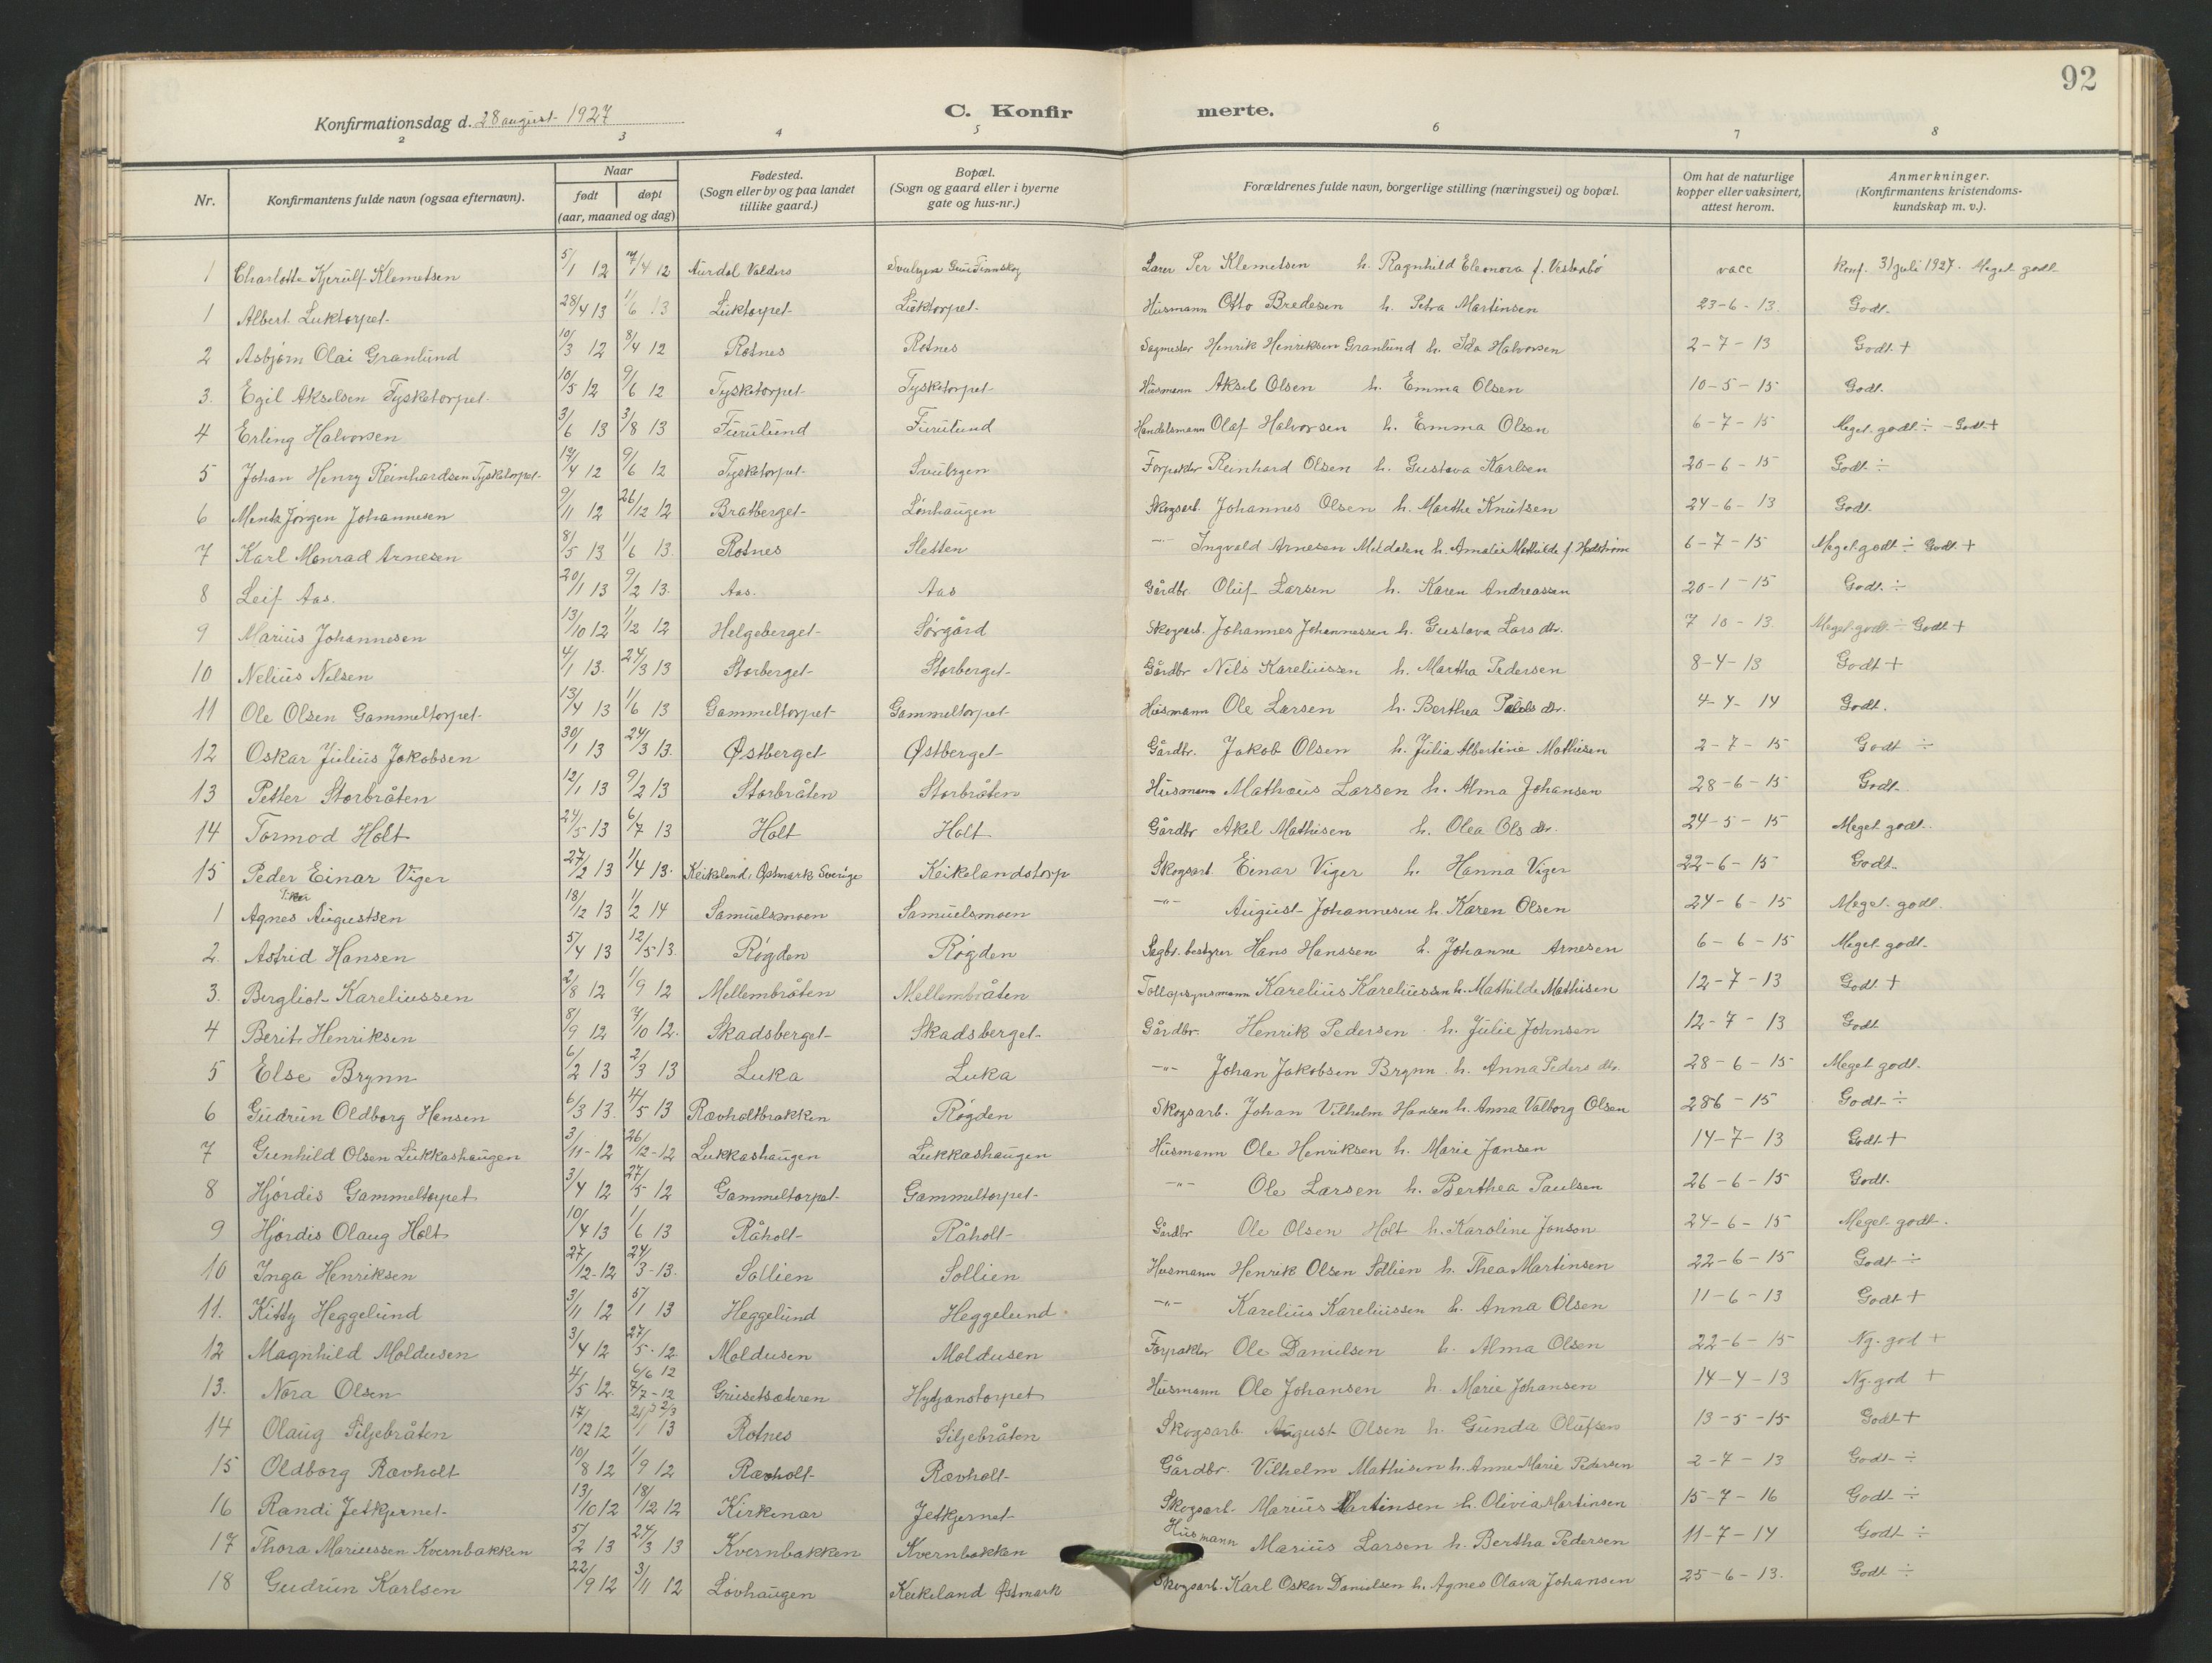 92
Konfirmationsdag d. 28 august 1927
C. Konfir merte.
2 3 4 5 6 7 8
Nr. Konfirmantens fulde navn (ogsaa efternavn). Naar født døpt (aar, maaned og dag) Fødested. (Sogn eller by og paa landet tillike gaard.) Bopæl. (Sogn og gaard eller i byerne gate og hus-nr.) Forældrenes fulde navn, borgerlige stilling (næringsvei) og bopæl. Om hat de naturlige kopper eller vaksinert, attest herom. Anmerkninger. (Konfirmantens kristendoms-kundskap m. v.).
1 Charlotte Kjerulf Klemetsen 5/1 12 7/4 12 Aurdal Valdres Svulrya Grue Finnskog Lærer Per Klemetsen h. Ragnhild Eleonora f. vacc Konf. 31 juli 1927. Meget godt
1 Albert Luktorpet 28/4 13 1/6 13 Luktorpet Luktorpet Husmann Otto Bredesen h. Petra Martinsen 23-6-13. Godt.
2 Asbjørn Olai Granlund 10/3 12 8/4 12 Rotnes Rotnes Sagmester Henrik Henriksen Granlund h. Ida Halvorsen 2-7-13 Godt +
3. Egil Akselsen Tysketorpet 10/5 12 9/6 12 Tysketorpet Tysketorpet Husmann Aksel Olsen h. Emma Olsen 10-5-15 Godt.
4 Erling Halvorsen 3/6 13 3/8 13 Furulund Furulund Handelsmann Olaf Halvorsen h. Emma Olsen 6-7-15 Meget godt ÷ - Godt +
5 Johan Henry Reinhardsen Tysketorpet 19/4 12 9/6 12 Tysketorpet Svulryen Forpakter Reinhard Olsen h. Gustava Karlsen 20-6-15 Godt ÷
6 Mentz Jørgen Johannesen 9/11 12 26/12 12 Bratberget Lønhaugen Skogsarb. Johannes Olsen h. Marthe Knutsen 24-6-13 Godt.
7 Karl Monrad Arnesen 8/5 13 1/6 13. Rotnes Sletten -"- Ingvald Arnesen Meldalen h. Amalie Mathilde f. Hedstrøm 6-7-15 Meget godt ÷ Godt +
8 Leif Aas. 20/1 13 9/2 13. Aas. Aas Gårdbr. Oluf Larsen h. Karen Andreassen 20-1-15 Godt. ÷
9 Marius Johannesen 13/10 12 1/12 12 Helgeberget Sørgård Skogsarb. Johannes Johannessen h. Gustava Lars dtr. 7 10-13 Meget godt ÷ Godt +
10 Nelius Nilsen 4/1 13. 24/3 13 Storberget Storberget Gårdbr Nils Kareliussen h. Martha Pedersen 8-4-13 Godt +
11 Ole Olsen Gammeltorpet 13/4 13 1/6 13 Gammeltorpet Gammeltorpet Husmann Ole Larsen h. Berthea dtr. 4-4-14 Godt.
12 Oskar Julius Jakobsen 30/1 13 24/3 13. Østberget Østberget Gårdbr. Jakob Olsen h. Julia Albertine Mathisen 2-7-15 Godt ÷
13 Petter Storbråten 12/1 13 9/2 13 Storbråten Storbråten Husmann Mathæus Larsen h. Alma Johansen 28-6-15 Godt.
14 Tormod Holt 24/5 13 6/7 13 Holt Holt Gårdbr Akel Mathisen h. Olea Ols dtr. 24-5-15 Meget godt.
15 Peder Einar Viger 27/2 13 1/4 13. Keikeland, Østmark Sverige Keikelandstorp Skogsarb. Einar Viger h. Hanna Viger 22-6-15 Godt.
Piker
1 Agnes Augustsen 18/12 13 1/2 14 Samuelsmoen Samuelsmoen -"- August Johannesen h. Karen Olsen 24-6-15 Meget godt.
2. Astrid Hansen 5/4 13 12/5 13. Røgden Røgden Sagbr. bestyrer Hans Hanssen h. Johanne Arnesen 6-6-15 Meget godt.
3. Bergliot Kareliussen 2/8 12 1/9 12 Mellembråten Mellembråten Tollopsynsmann Karelius Kareliussen h. Mathilde Mathisen 12-7-13 Godt +
4 Berit Henriksen 8/9 12 7/10 12. Skadsberget Skadsberget Gårdbr. Henrik Pedersen h. Julie Johnsen 12-7-13 Godt
5 Else Brynn 6/2 13 2/3 13 Luka Luka -"- Johan Jakobsen Brynn h. Anna Peders dtr. 28-6-15 Meget godt.
6 Gudrun Oldborg Hansen 6/3 13. 4/5 13 Rævholtbrakken Røgden Skogsarb. Johan Vilhelm Hansen h. Anna Valborg Olsen 286-15 Godt ÷
7 Gunhild Olsen Lukkashaugen 3/11-12 26/12-12 Lukkashaugen Lukkashaugen Husmann Ole Henriksen h. Marie Jansen 14-7-13 Godt +
8 Hjørdis Gammeltorpet 3/4 12 27/5 12 Gammeltorpet Gammeltorpet -"- Ole Larsen h. Berthea Paulsen 26-6-15 Godt.
9 Hjørdis Olaug Holt 10/4 13 1/6 13 Råholt Råholt Gårdbr Ole Olsen Holt h. Karoline Jonson 24-6-15 Meget godt.
10 Inga Henriksen 27/12-12 24/3-13. Sollien Sollien Husmann Henrik Olsen Sollien h. Thea Martinsen 22-6-15 Godt ÷
11. Kitty Heggelund 3/11 12 5/1 13 Heggelund Heggelund -"- Karelius Kareliussen h. Anna Olsen 11-6-13 Godt +
12 Magnhild Moldusen 3/4 12 27/5-12 Moldusen Moldusen Forpakter Ole Danielsen h. Alma Olsen 22-6-15 Ng. god +
13. Nora Olsen 4/5 12. 6/6 12 7/7-12 Gruesetsæteren Hytjanstorpet Husmann Ole Johansen h. Marie Johansen 14-4-13 Ng. god +
14 Olaug Siljebråten 17/12 12 13 Rotnes Siljebråten Skogsarb. August Olsen h. Gunda Olufsen 13-5-15 Godt +
15 Oldborg Rævholt 10/8 12 1/9 12 Rævholt Rævholt Gårdbr. Vilhelm Mathisen h. Anne Marie Pedersen 2-7-13 Godt ÷
16 Randi Jetkjernet 13/10 12 18/12 12 Kirkenær Jetkjernet Skogsarb. Marius Martinsen h. Olivia Martinsen 15-7-16 Godt ÷
17 Thora Mariussen Kvernbakken 5/2 13 24/3 13 Kvernbakken Kvernbakken Husmann Marius Larsen h. Bertha Pedersen 11-7-14 Godt ÷
18 Gudrun Karlsen 22/9 12 3/11 12 Løvhaugen Keikeland Østmark Skogsarb. Karl Oskar Danielsen h. Agnes Olava Johansen 25-6-13. Godt ÷